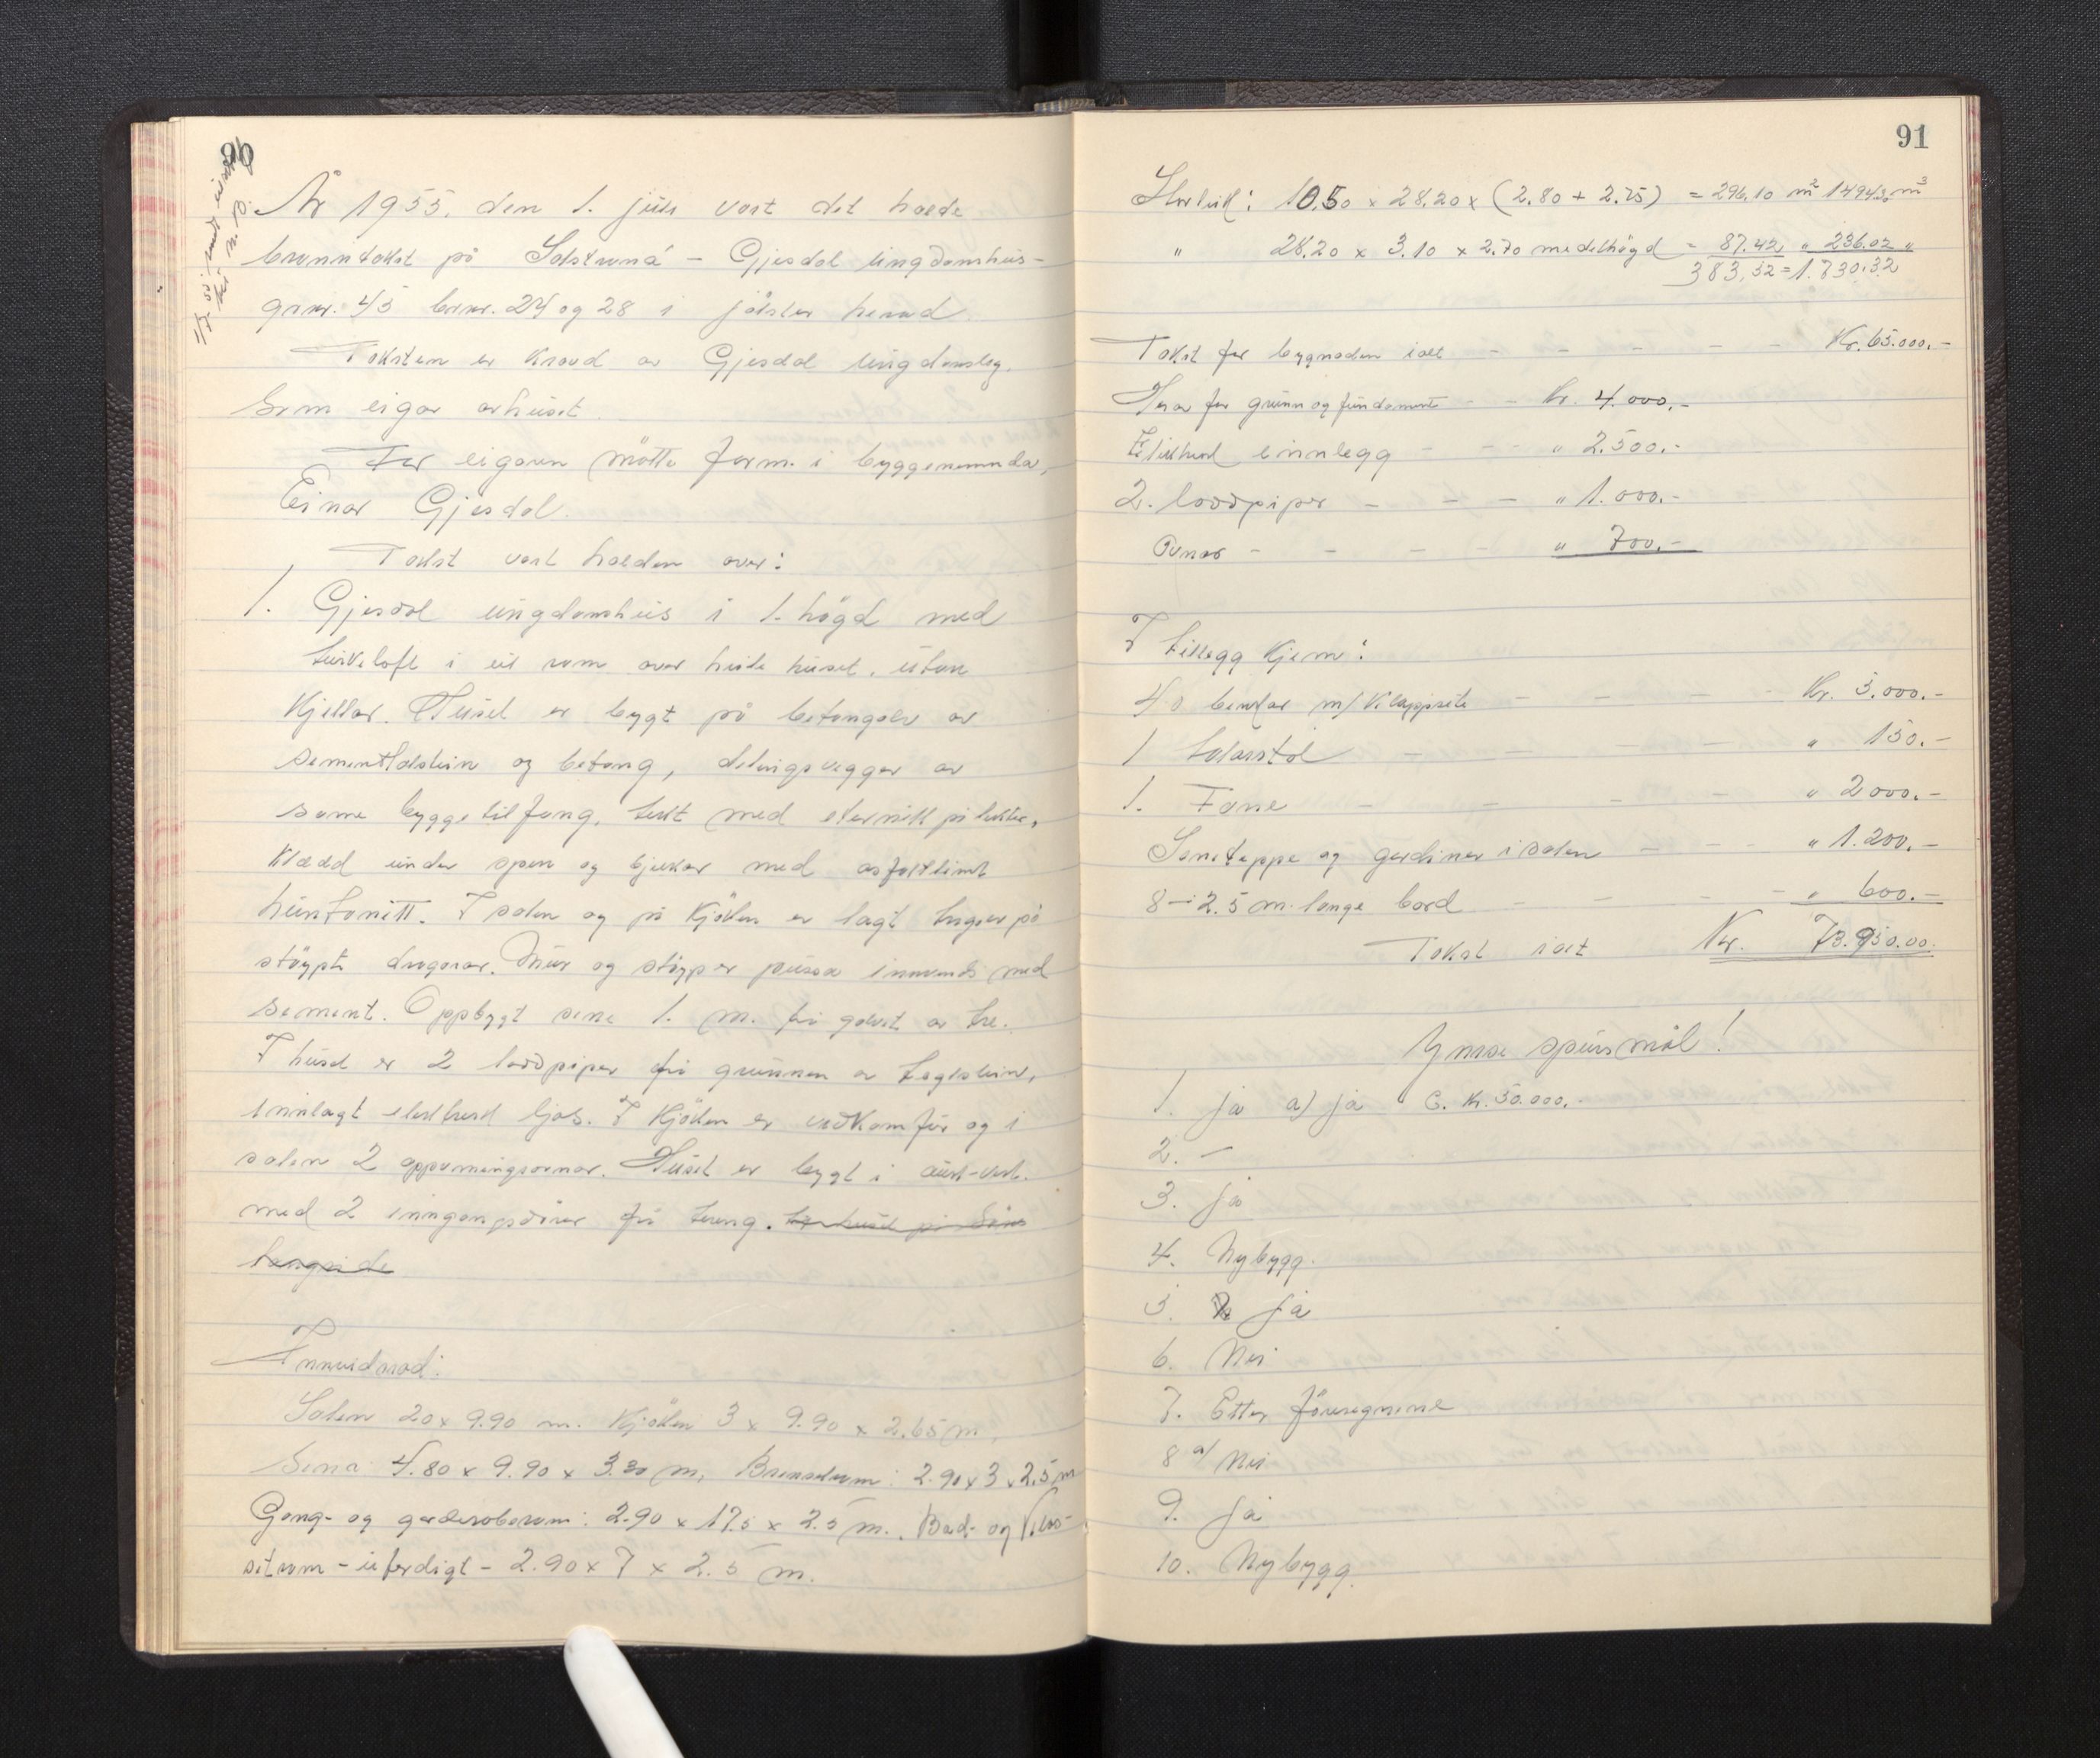 90
År 1955. den 1. juli vart det halde
branntakst på Solstraná - Gjesdal ungdomshus -
gnr. 45 brnr. 24 og 28 i Jølster herad.
Taksten er kravd av Gjesdal ungdomslag.
som eigar av huset.
For eigaren møtte form. i byggenemnda,
Einar Gjesdal.
Takst vart halden over:
1. Gjesdal ungdomshus i 1. høgd med
turkeloft i eit rom over heile huset, utan
kjellar. Huset er bygt på betongolv av
sementholstein og betong, delingsvegger av
same byggetilfang, tekt med eternitt på lekter,
klædd under sperr og bjelkar med asfaltlimt
huntonitt. I salen og på kjøken er lagt tregolv på
støypte dragarar. Mur og støyp er pussa innvendes med
sement. Oppbygt sene 1. m. frå golvet av tre.
I huset er 2 loddpiper frå grunnen av teglstein,
innlagt elektrisk ljos. I kjøken er vedkomfyr og i
salen 2 oppvarmingsovnar. Huset er bygt i aust-vest.
med 2 inngangsdører frå tereng. tr huset på
langside
Innvidared:
Salen 20 x 9.90 m. Kjøken 3 x 9.90 x 2.65 m,
Sena 4.80 x 9.90 x 3.30 m, Brenselrom: 2.90 x 3 x 2.5 m
Gang- og garderoberom: 2.90 x 17.5 x 2.5 m. Bad- og klos-
setrom - uferdigt - 2.90 x 7 x 2.5 m.
91
Storleik: 10.50 x 28.20 x (2.80 + 2.25) = 296.10 m² 1494.30 m³
" 28.20 x 3.10 x 2.70 medelhøgd = 87.42 " 236.02 "
383,52 = 1.730.32
Takst for bygnaden ialt - - - - - Kr. 65.000.-
Herav for grunn og fundament - - Kr. 4.000,-
Elektrisk innlegg - - - " 2.500.-
2. loddpiper - - - " 1.000.-
Ovnar - - - - " 700.-
I tillegg kjem:
40 benkar m/ klappsete - - - - Kr. 3.000.-
1 talarstol - - - - - " 150.-
1. Fane - - - - " 2000.-
Seneteppe og gardiner i salen - - - " 1.200.-
8 - 2.5 m. lange bord - - - - " 600.-
Takst ialt Kr. 73.950.00.
Ymse spursmål!
1. ja a) ja c. kr. 50.000.-
2. -
3. ja
4. Nybygg.
5. ja
6. Nei
7. Etter føresegnene
8 a/ Nei
9. ja
10. Nybygg.